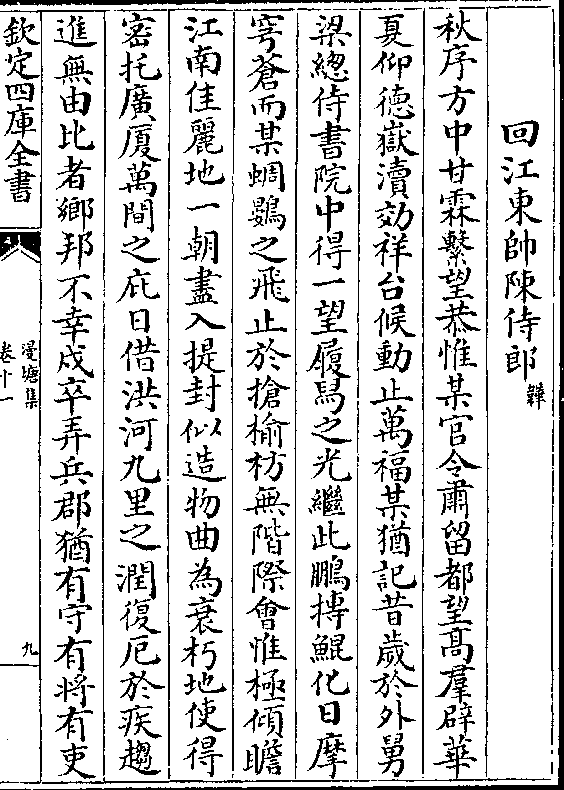 回江東帥陳侍郎韡
秋序方中甘霖繫望恭惟某官令肅留都望髙羣辟華
夏仰德嶽瀆効祥台候動止萬福某猶記昔歲於外舅
梁總侍書院中得一望履舄之光繼此鵬摶鯤化日摩
穹蒼而某蜩鷃之飛止於搶榆枋無階際會惟極傾瞻
江南佳麗地一朝盡入提封似造物曲為衰朽地使得
密托廣厦萬間之庇日借洪河九里之潤復厄於疾趨
進無由比者鄉邦不幸戍卒弄兵郡猶有守有將有吏
欽定四庫全書
漫塘集
卷十一
九